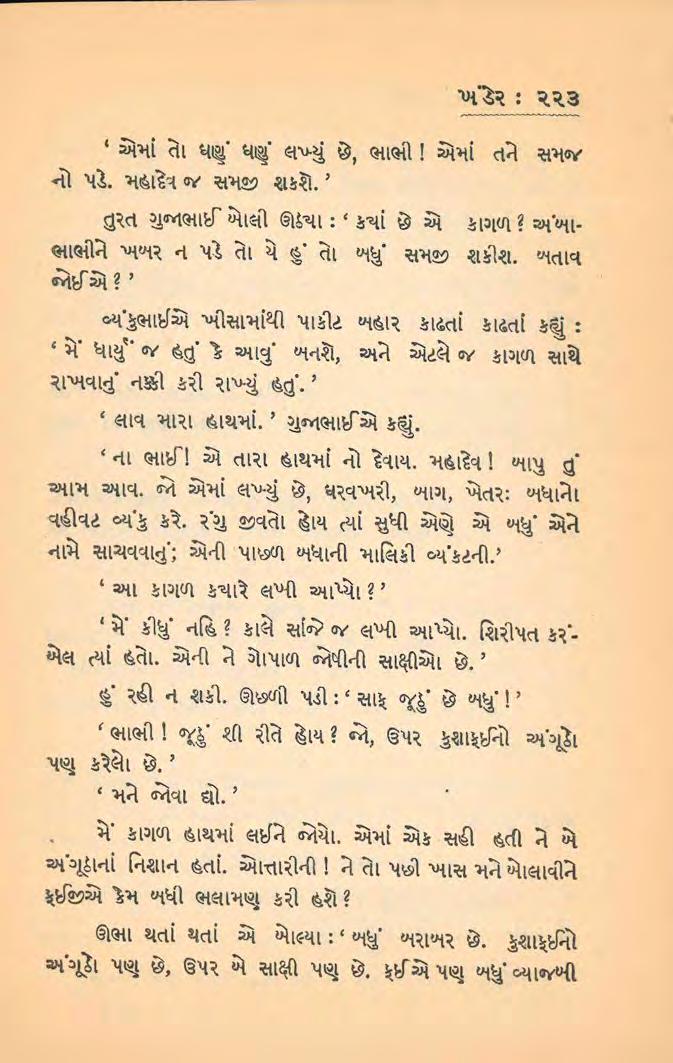 ખંડેર : ૨૨૩
‘ એમાં તો ઘણું ઘણું લખ્યું છે, ભાભી ! એમાં તને સમજ
નો પડે. મહાદેવ જ સમજી શકશે. ’
તુરત ગુજાભાઈ બોલી ઊઠ્યા : ‘ ક્યાં છે એ કાગળ ? અંબા-
ભાભીને ખબર ન પડે તો યે હું તો બધું સમજી શકીશ. બતાવ
જોઈએ ? ’
વ્યંકુભાઈએ ખીસામાંથી પાકીટ બહાર કાઢતાં કાઢતાં કહ્યું :
‘ મેં ધાર્યું જ હતું કે આવું બનશે, અને એટલે જ કાગળ સાથે
રાખવાનું નક્કી કરી રાખ્યું હતું. ’
‘ લાવ મારા હાથમાં. ’ ગુજાભાઈએ કહ્યું.
‘ ના ભાઈ! એ તારા હાથમાં નો દેવાય. મહાદેવ ! બાપુ તું
આમ આવ. જો એમાં લખ્યું છે, ઘરવખરી, બાગ, ખેતરઃ બધાનો
વહીવટ વ્યંકુ કરે. રંગુ જીવતો હોય ત્યાં સુધી એણે એ બધું એને
નામે સાચવવાનું; એની પાછળ બધાની માલિકી વ્યંકટની.’
‘ આ કાગળ ક્યારે લખી આપ્યો ? ’
‘ મેં કીધું નહિ ? કાલે સાંજે જ લખી આપ્યો. શિરીપત કરં-
બેલ ત્યાં હતો. એની ને ગોપાળ જોષીની સાક્ષીઓ છે. ’
હું રહી ન શકી. ઊછળી પડી : ‘ સાફ જૂઠું છે બધું ! ’
‘ ભાભી ! જૂઠું શી રીતે હોય ? જો, ઉપર કુશાફઈનો અંગૂઠો
પણ કરેલો છે. ’
‘ મને જોવા દ્યો. ’
મેં કાગળ હાથમાં લઈને જોયો. એમાં એક સહી હતી ને બે
અંગૂઠાનાં નિશાન હતાં. ઓત્તારીની ! ને તો પછી ખાસ મને બોલાવીને
ફઈજીએ કેમ બધી ભલામણ કરી હશે ?
ઊભા થતાં થતાં એ બોલ્યા : ‘ બધું બરાબર છે. કુશાફઈનો
અંગૂઠો પણ છે, ઉપર બે સાક્ષી પણ છે. ફઈએ પણ બધું વ્યાજબી